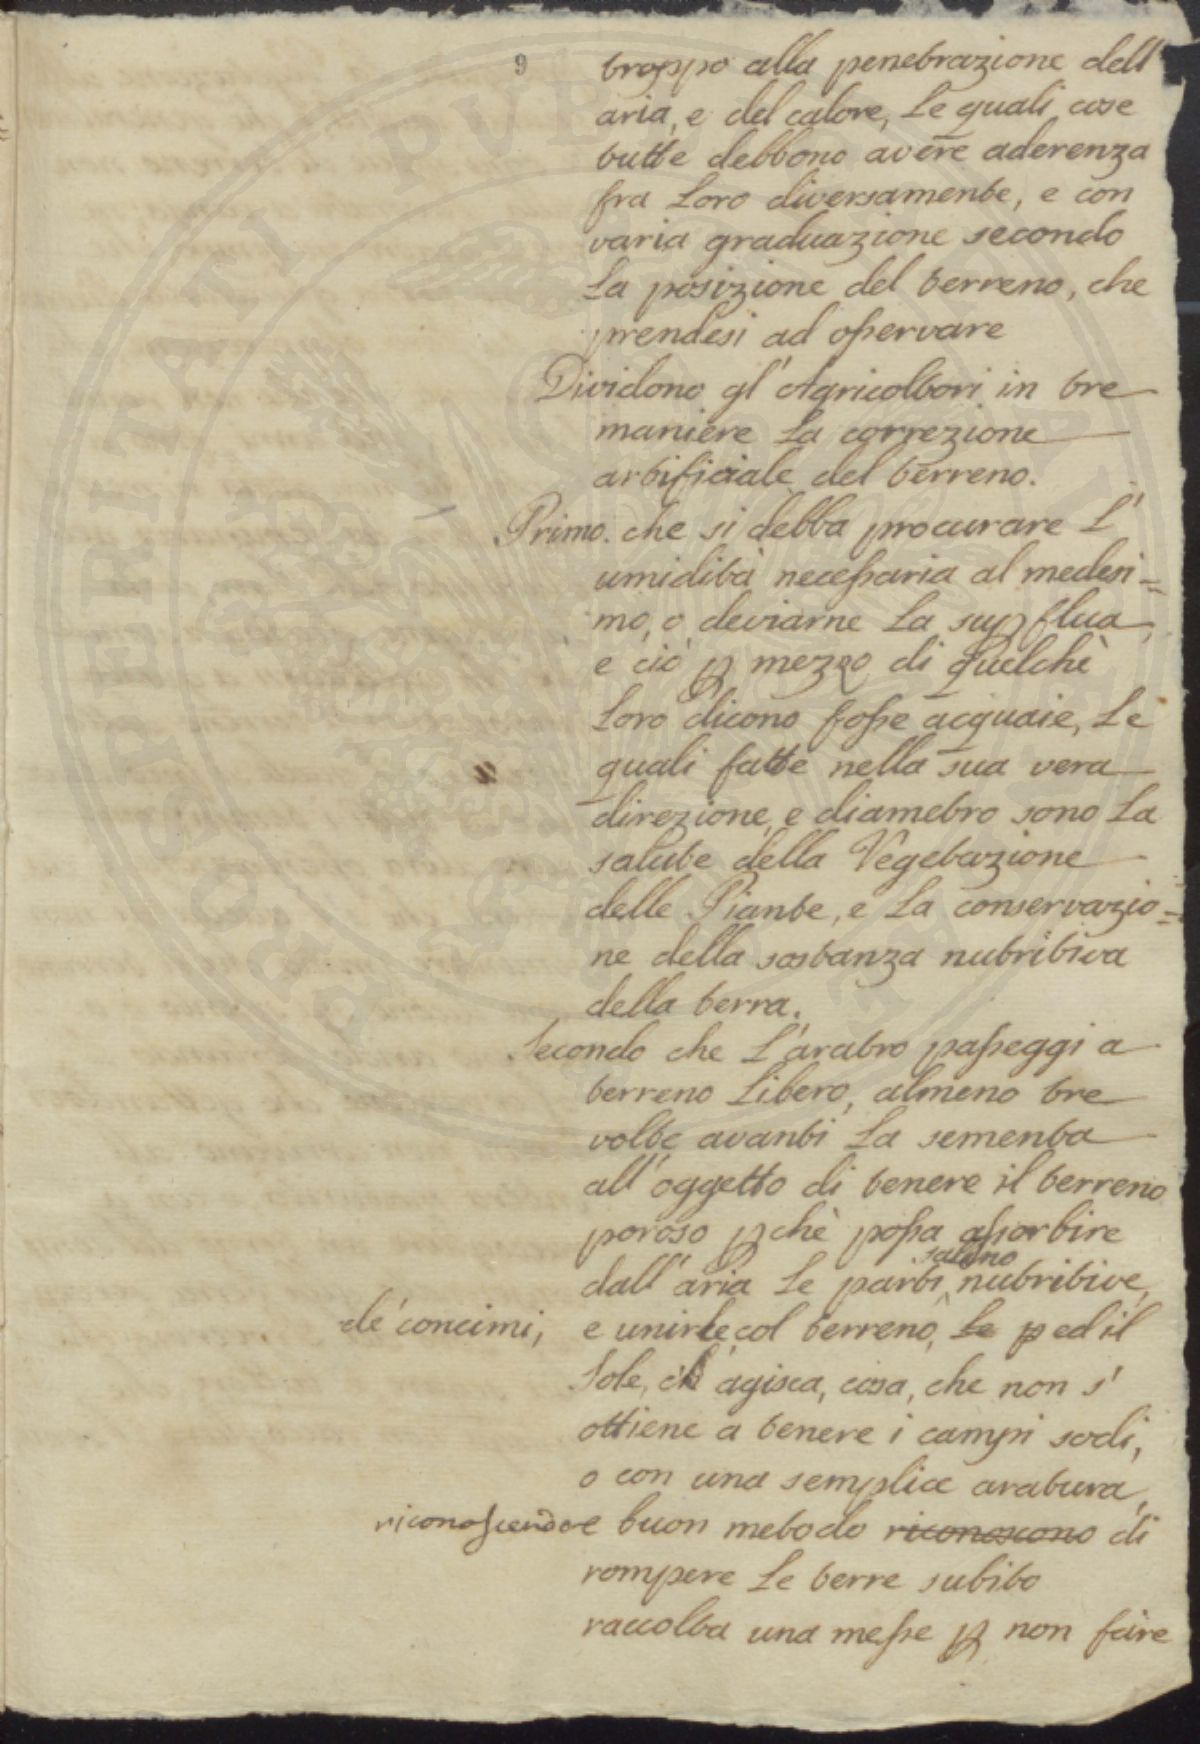 9
troppo alla penetrazione dell'
aria, e del calore, Le quali cose
tutte debbono avere aderenza
fra Loro diversamente, e con
varia graduazione secondo
La posizione del terreno, che
prendesi ad oſservare
Dividono gl' Agricoltori in tre
maniere La correzione
artificiale del terreno.
Primo. che si debba procurare L'
umidità neceſsaria al medesi=
mo, o deviarne La sup flua,
e ciò p mezzo di quelchè
Loro dicono foſse acquaie, Le
quali fatte nella sua vera
direzione, e diametro sono La
salute della Vegetazione
delle Piante, e La conservazio=
ne della sostanza nutritiva
della terra.
Secondo che L'aratro paſseggi a
terreno Libero, almeno tre
volte avanti La sementa
all'oggetto di tenere il terreno
poroso p chè poſsa aſsorbire
dall'aria Le parti nutritive,
de' concimi,
e unirle col terreno, Le p ed il
Sole, ch' agisca, cosa, che non s'
ottiene a tenere i campi sodi,
o con una semplice aratura,
riconoſcendo
e buon metodo riconoscono di
rompere Le terre subito
raccolta una meſse p non fare
PROSPERITATI PUBLICAE